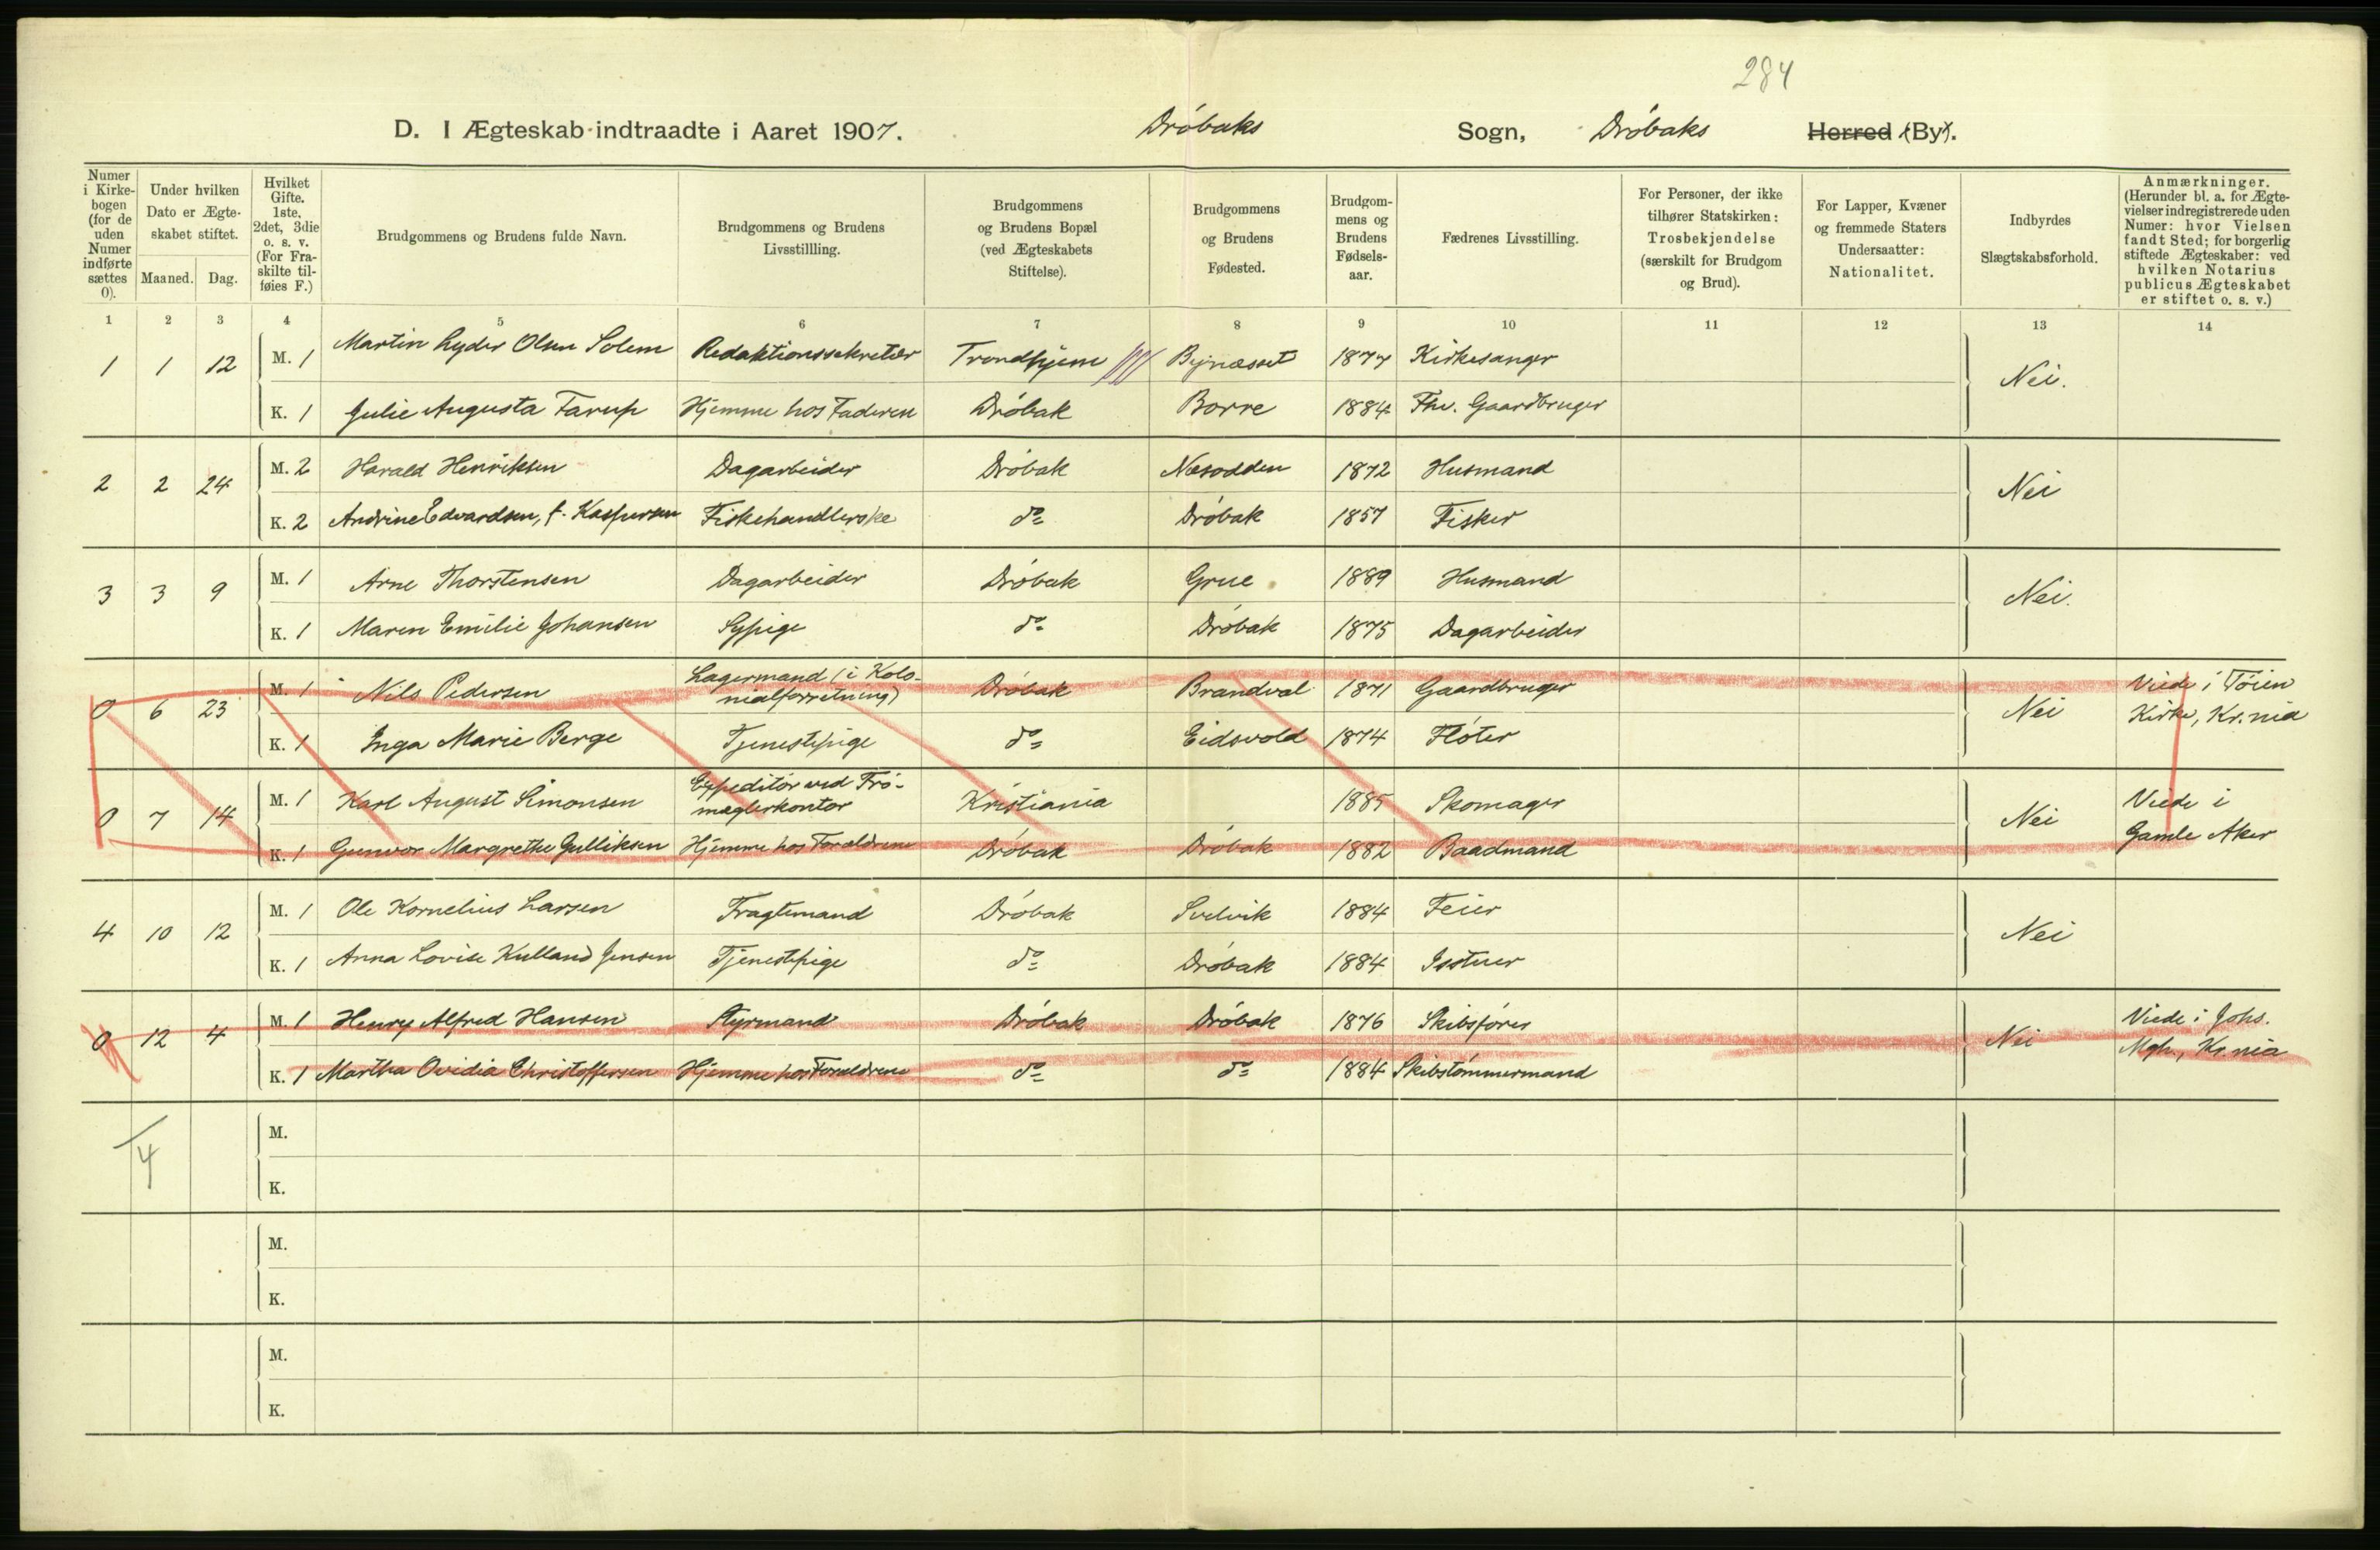 284
D. I Ægteskab indtraadte i Aaret 1907. Drøbaks Sogn, Drøbaks Herred (By).
Numer i Kirkebogen (for de uden Numer indførte sættes 0).
Under hvilken Dato er Ægteskabet stiftet.
Maaned. Dag.
Hvilket Gifte. 1ste, 2det, 3die o. s. v. (For Fraskilte tilføies F.)
Brudgommens og Brudens fulde Navn.
Brudgommens og Brudens Livsstillling.
Brudgommens og Brudens Bopæl (ved Ægteskabets Stiftelse).
Brudgommens og Brudens Fødested.
Brudgommens og Brudens Fødselsaar.
Fædrenes Livsstilling.
For Personer, der ikke tilhører Statskirken: Trosbekjendelse (særskilt for Brudgom og Brud).
For Lapper, Kvæner og fremmede Staters Undersaatter: Nationalitet.
Indbyrdes Slægtskabsforhold.
Anmærkninger. (Herunder bl. a. for Ægtevielser indregistrerede uden Numer: hvor Vielsen fandt Sted; for borgerlig stiftede Ægteskaber: ved hvilken Notarius publicus Ægteskabet er stiftet o. s. v.)
1 2 3 4 5 6 7 8 9 10 11 12 13 14
1 1 12 M. 1 Martin Lyder Olsen Solem Redaktionssekretær Trondhjem Bynæsset 1877 Kirkesanger Nei.
K. 1 Julie Augusta Tarup Hjemme hos Faderen Drøbak Borre 1884 Fhv. Gaardbruger
2 2 24 M. 2 Harald Henriksen Dagarbeider Drøbak Næsodden 1872 Husmand Nei
K. 2 Andrine Edvardsen, f. Kaspersen Fiskehandlerske do Drøbak 1857 Fisker
3 3 9 M. 1 Arne Thorstensen Dagarbeider Drøbak Grue 1889 Husmand Nei.
K. 1 Maren Emilie Johansen Sypige do Drøbak 1875 Dagarbeider
0 6 23 M. 1 Nils Pedersen Lagermand (i Kolonialforretning) Drøbak Brandval 1871 Gaardbruger Nei Viede i Tøien Kirke, Kr.nia
K. 1 Inga Marie Berge Tjenestepige do Eidsvold 1874 Fløter
0 7 14 M. 1 Karl August Simonsen Expeditør ved Frømæglerkontor Kristiania 1885 Skomager Nei Viede i Gamle Aker
K. 1 Gunvor Margrethe Gulliksen Hjemme hos Forældrene Drøbak Drøbak 1882 Baadmand
4 10 12 M. 1 Ole Kornelius Larsen Fragtemand Drøbak Svelvik 1884 Feier Nei
K. 1 Anna Lovise Kulland Jensen Tjenestepige do Drøbak 1884 Isstuer
0 12 4 M. 1 Henry Alfred Hansen Styrmand Drøbak Drøbak 1876 Skibsfører Nei Viede i Johs. Mgh., Kr.nia
K. 1 Martha Ovidia Christoffersen Hjemme hos Forældrene do do 1884 Skibstømmermand
4 M.
K.
M.
K.
M.
K.